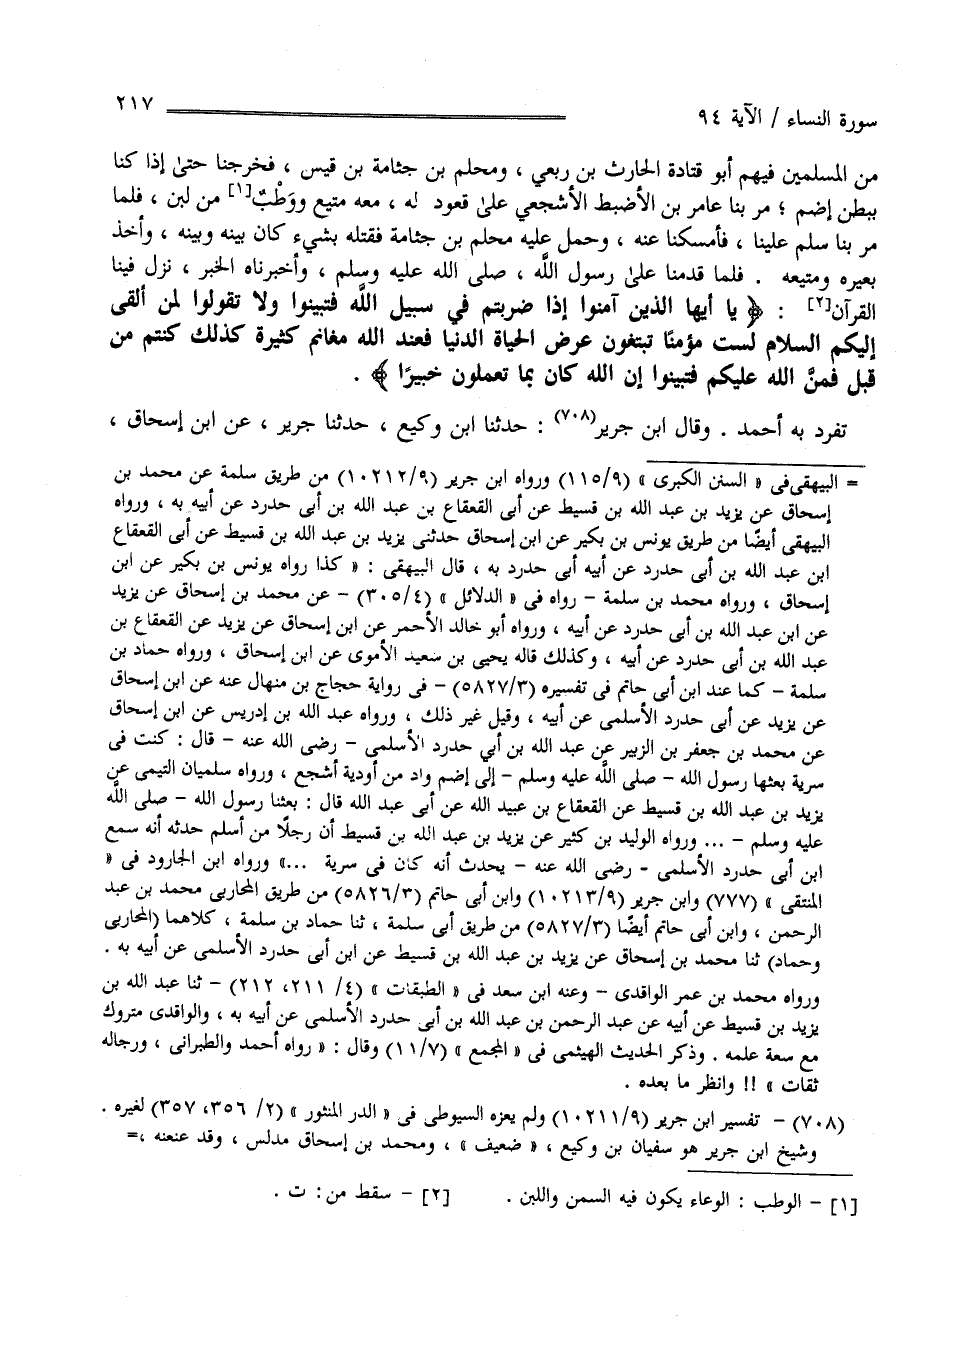 سورة النساء / الآية ٩٤
٢١٧
من المسلمين فيهم أبو قتادة الحارث بن ربعي ، ومحلم بن جثامة بن قيس ، فخرجنا حتىٰ إذا كنا
ببطن إضم ؛ مر بنا عامر بن الأضبط الأشجعي علىٰ قعود له ، معه متيع ووَطْبٌ[١] من لبن ، فلما
مر بنا سلم علينا ، فأمسكنا عنه ، وحمل عليه محلم بن جثامة فقتله بشيء كان بينه وبينه ، وأخذ
بعيره ومتيعه . فلما قدمنا علىٰ رسول اللَّه ، صلى الله عليه وسلم ، وأخبرناه الخبر ، نزل فينا
القرآن[٢] : ﴿ يا أيها الذين آمنوا إذا ضربتم في سبيل اللَّه فتبينوا ولا تقولوا لمن ألقى
إليكم السلام لست مؤمنًا تبتغون عرض الحياة الدنيا فعند الله مغانم كثيرة كذلك كنتم من
قبل فمنَّ الله عليكم فتبينوا إن الله كان بما تعملون خبيرًا ﴾ .
تفرد به أحمد . وقال ابن جرير(٧٠٨) : حدثنا ابن وكيع ، حدثنا جرير ، عن ابن إسحاق ،
= البيهقى فى « السنن الكبرى » (١١٥/٩) ورواه ابن جرير (١٠٢١٢/٩) من طريق سلمة عن محمد بن
إسحاق عن يزيد بن عبد الله بن قسيط عن أبى القعقاع بن عبد الله بن أبى حدرد عن أبيه به ، ورواه
البيهقى أيضًا من طريق يونس بن بكير عن ابن إسحاق حدثنى يزيد بن عبد الله بن قسيط عن أبى القعقاع
ابن عبد الله بن أبى حدرد عن أبيه أبى حدرد به ، قال البيهقى : « كذا رواه يونس بن بكير عن ابن
إسحاق ، ورواه محمد بن سلمة - رواه فى « الدلائل » (٣٠٥/٤) - عن محمد بن إسحاق عن يزيد
عن ابن عبد الله بن أبى حدرد عن أبيه ، ورواه أبو خالد الأحمر عن ابن إسحاق عن يزيد عن القعقاع بن
عبد الله بن أبى حدرد عن أبيه ، وكذلك قاله يحيى بن سعيد الأموى عن ابن إسحاق ، ورواه حماد بن
سلمة - كما عند ابن أبى حاتم فى تفسيره (٥٨٢٧/٣) - فى رواية حجاج بن منهال عنه عن ابن إسحاق
عن يزيد عن أبى حدرد الأسلمى عن أبيه ، وقيل غير ذلك ، ورواه عبد الله بن إدريس عن ابن إسحاق
عن محمد بن جعفر بن الزبير عن عبد الله بن أبي حدرد الأسلمى - رضى الله عنه - قال : كنت فى
سرية بعثها رسول الله - صلى اللَّه عليه وسلم - إلى إضم واد من أودية أشجع ، ورواه سلميان التيمى عن
يزيد بن عبد الله بن قسيط عن القعقاع بن عبيد الله عن أبى عبد الله قال : بعثنا رسول الله - صلى اللَّه
عليه وسلم - ... ورواه الوليد بن كثير عن يزيد بن عبد الله بن قسيط أن رجلًا من أسلم حدثه أنه سمع
ابن أبى حدرد الأسلمى - رضى الله عنه - يحدث أنه كان فى سرية ...» ورواه ابن الجارود فى «
المنتقى » (٧٧٧) وابن جرير (١٠٢١٣/٩) وابن أبى حاتم (٥٨٢٦/٣) من طريق المحاربى محمد بن عبد
الرحمن ، وابن أبى حاتم أيضًا (٥٨٢٧/٣) من طريق أبى سلمة ، ثنا حماد بن سلمة ، كلاهما (المحاربى
وحماد) ثنا محمد بن إسحاق عن يزيد بن عبد الله بن قسيط عن ابن أبى حدرد الأسلمى عن أبيه به .
ورواه محمد بن عمر الواقدى - وعنه ابن سعد فى « الطبقات » (٤/ ٢١١، ٢١٢) - ثنا عبد الله بن
يزيد بن قسيط عن أبيه عن عبد الرحمن بن عبد الله بن أبى حدرد الأسلمى عن أبيه به ، والواقدى متروك
مع سعة علمه . وذكر الحديث الهيثمى فى « المجمع » (١١/٧) وقال : « رواه أحمد والطبرانى ، ورجاله
ثقات » !! وانظر ما بعده .
(٧٠٨) - تفسير ابن جرير (١٠٢١١/٩) ولم يعزه السيوطى فى « الدر المنثور » (٢/ ٣٥٦، ٣٥٧) لغيره .
وشيخ ابن جرير هو سفيان بن وكيع ، « ضعيف » ، ومحمد بن إسحاق مدلس ، وقد عنعنه ،=
[١] - الوطب : الوعاء يكون فيه السمن واللبن . [٢] - سقط من : ت .